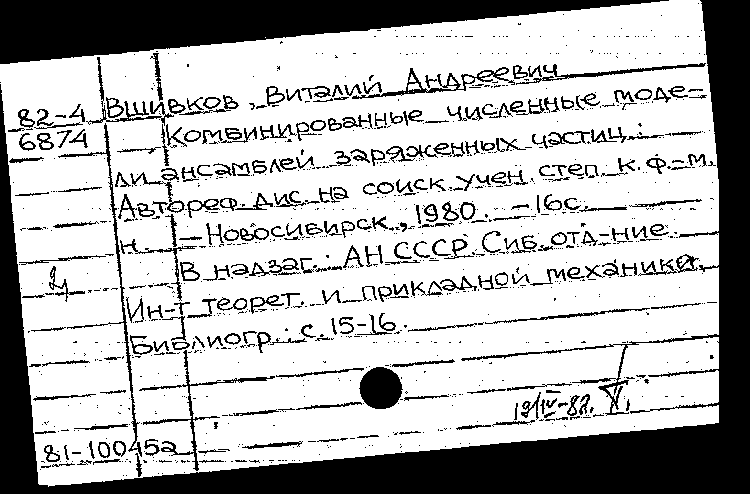 82-4 Вшивков, Виталий Андреевич
6874 Комбинированные численные моде-
ли ансамблей заряженных частиц.:
Автореф. дис. на соиск. учен. степ. к. ф.-м.
н. — Новосибирск, 1980. — 16 с.
В надзаг.: АН СССР. Сиб. отд-ние.
Ин-т теорет. и прикладной механики.
Библиогр.: с. 15-16.
19/IV-82.
81-100452